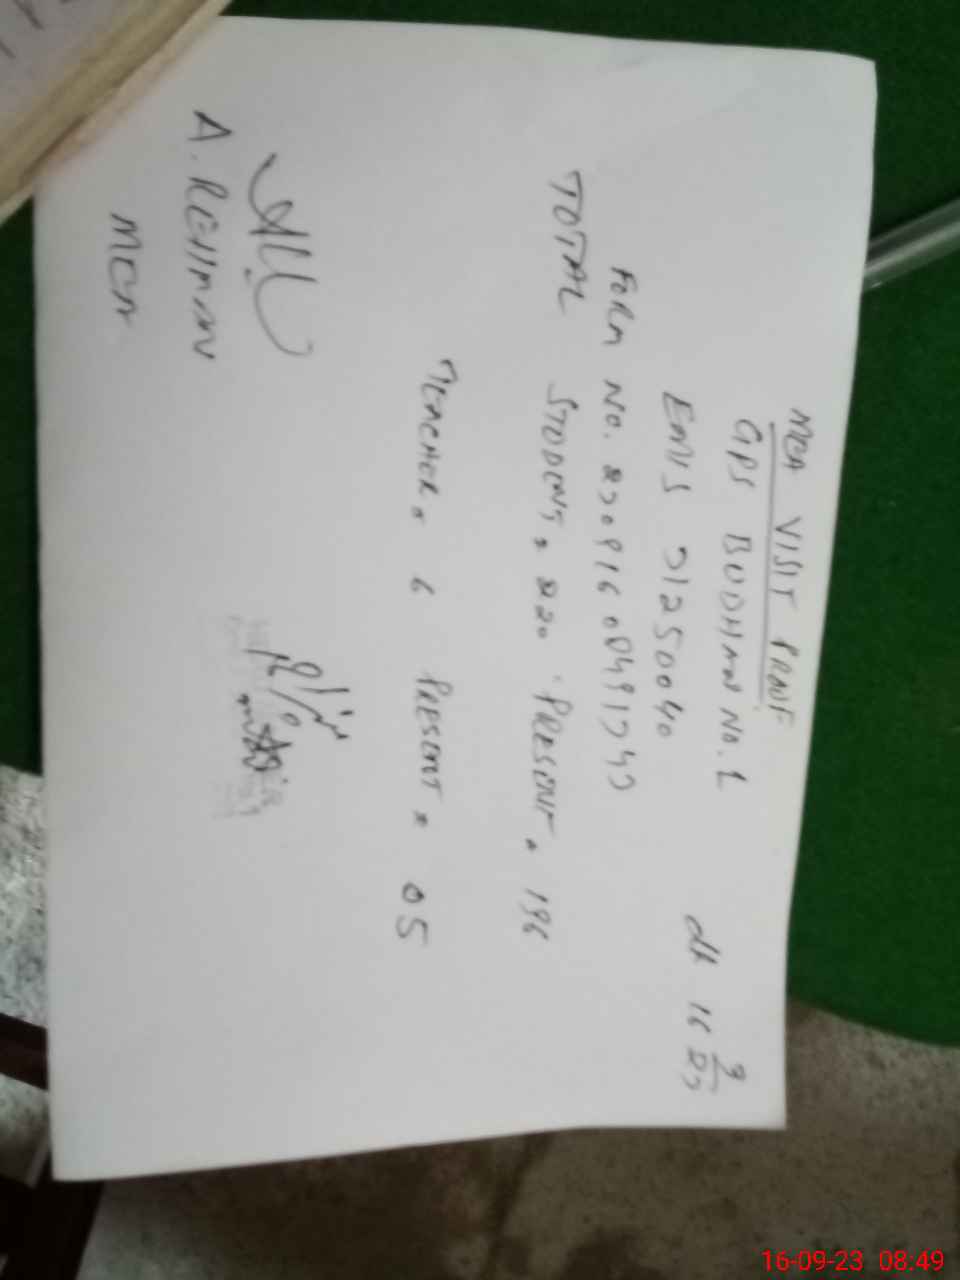 MEA VISIT PROOF
GPS BUDHNN NO. 1
EMIS 31250040
dt 16 9/23
FORM NO. 230916084917343
TOTAL STUDENT = 220 . PRESENT = 196
TEACHER = 6 PRESENT = 05
A. REHMAN
MEA
16-09-23 08:49